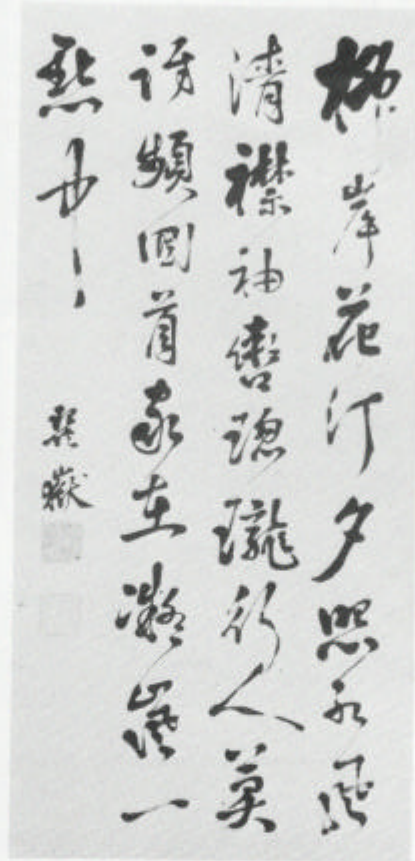 柳岸花汀夕照紅風
清襟袖轡璁瓏行人莫
訝頻回首家在凝嵐一
點中
嶽